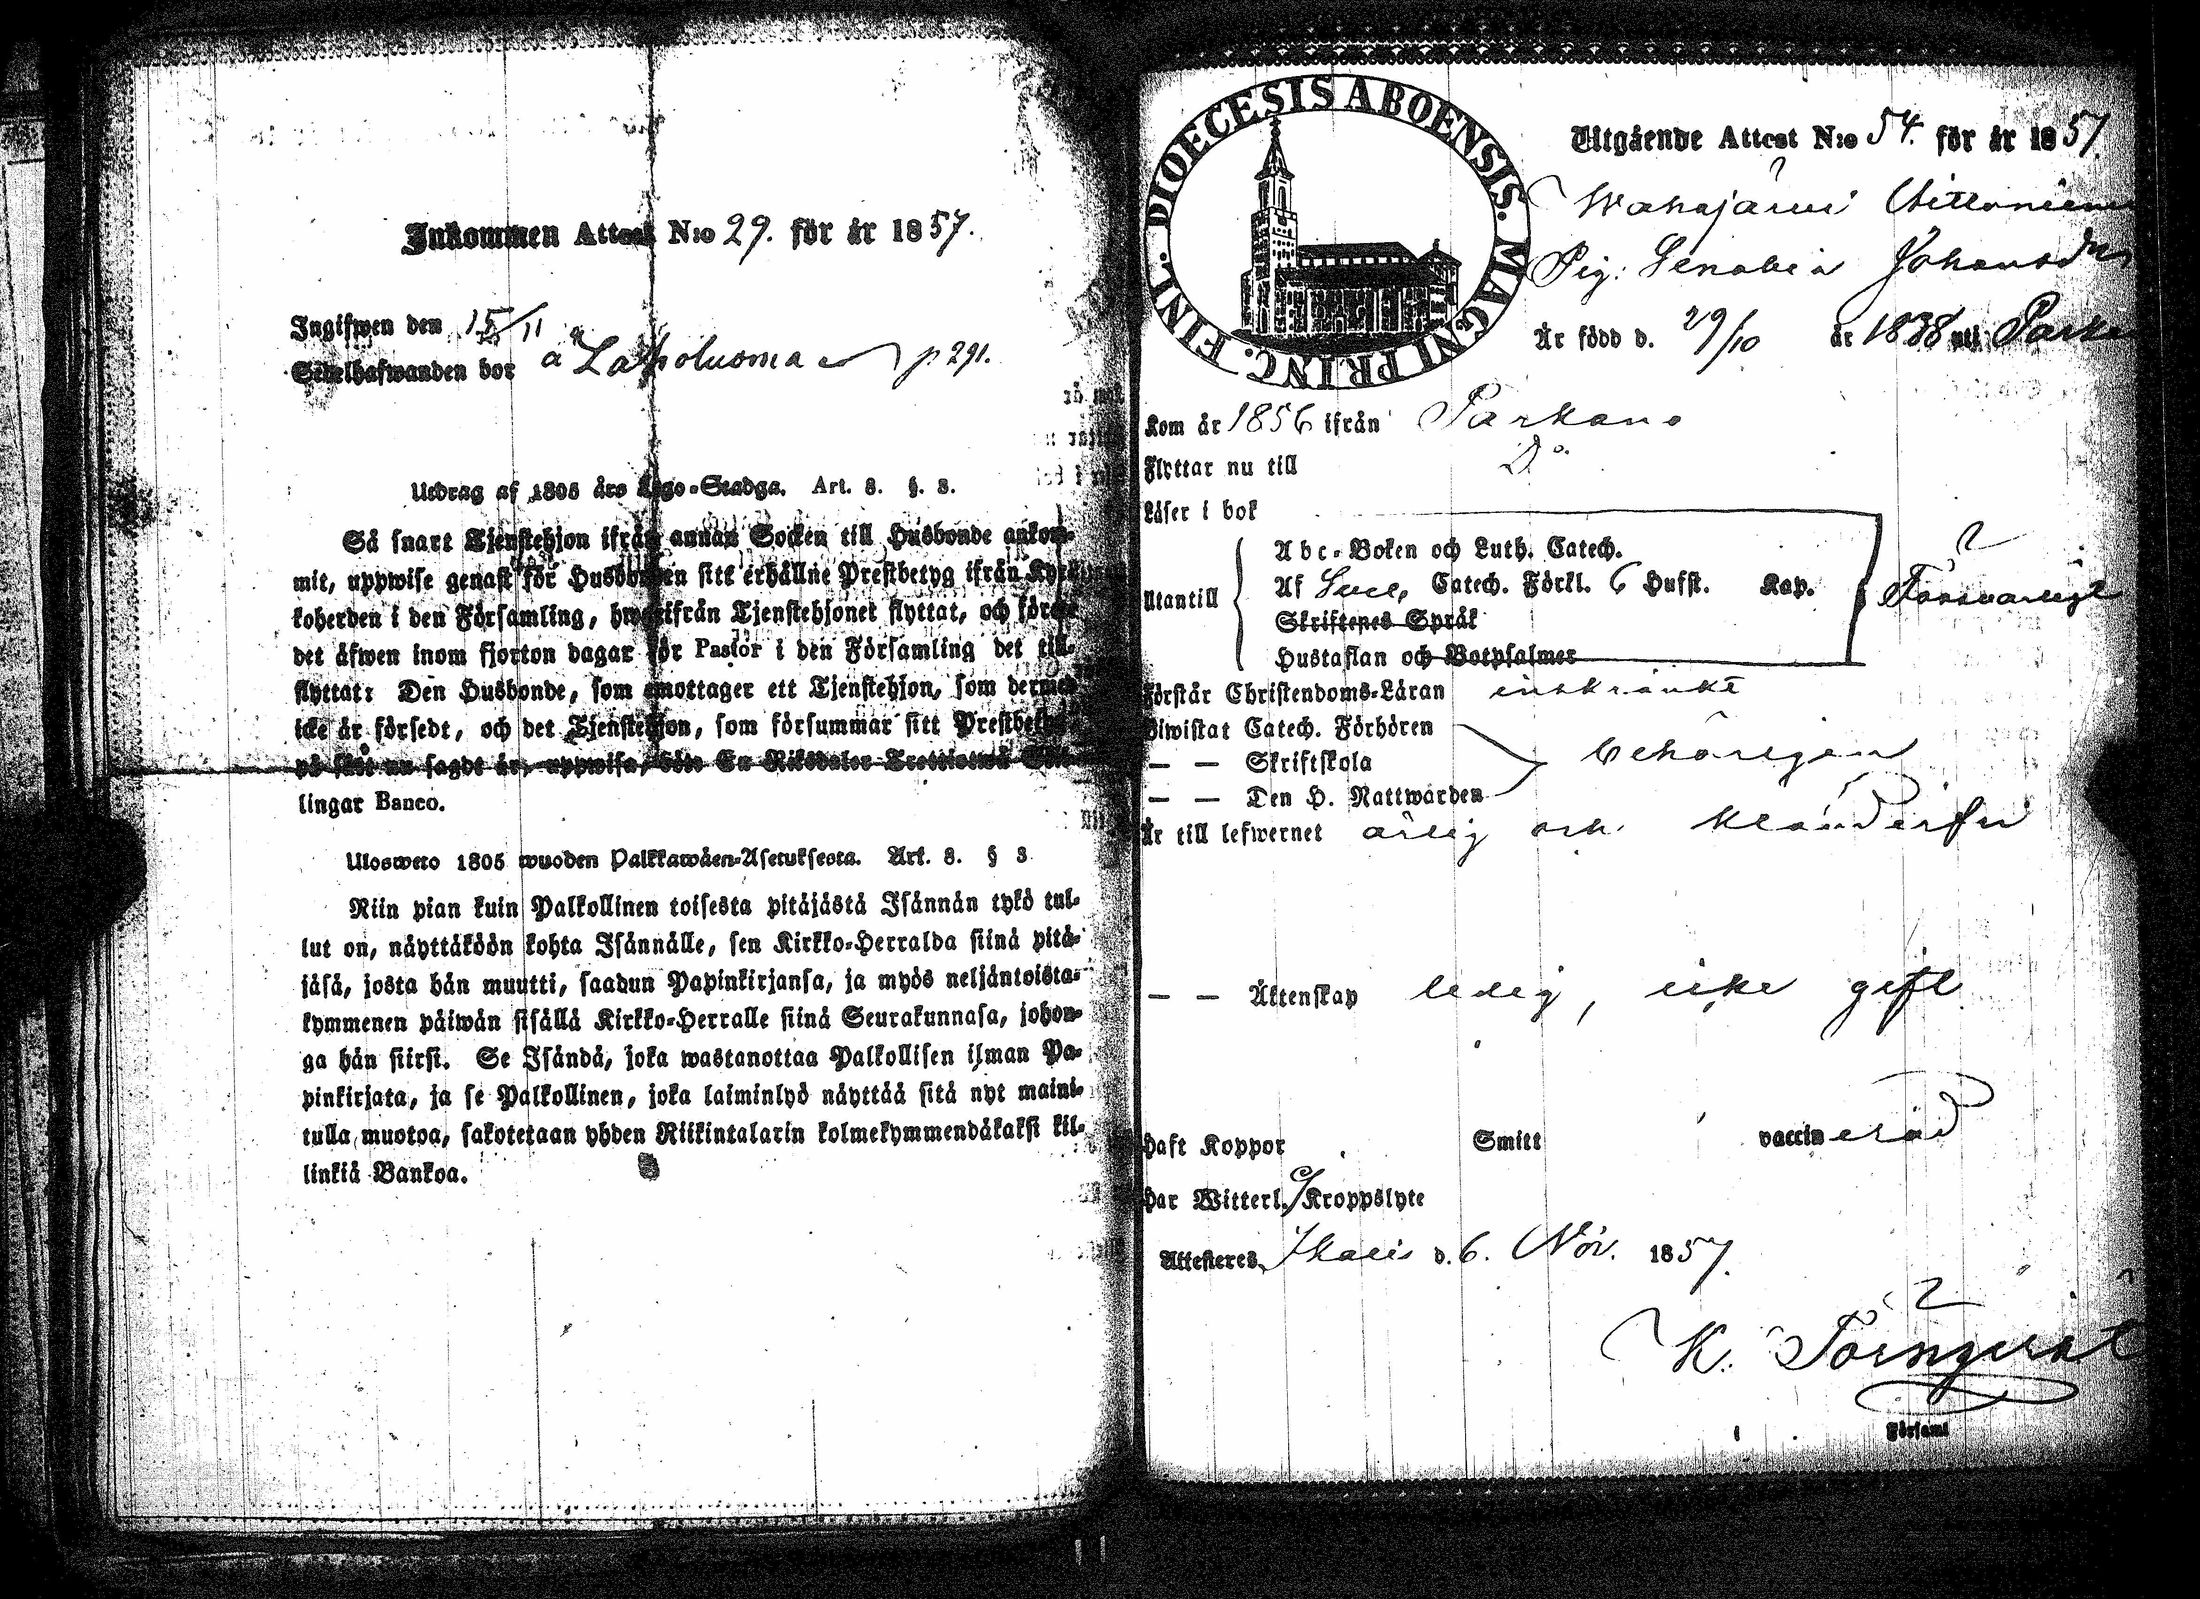 Inkommen Attest N:o 29. för år 1857.
Ingifwen den 15/11
Sedelhafwanden bor å Laholuoma p 291.
Utdrag af 1805 års Lego-Stadga. Art. 8. §. 3.
Så snart Tjenstehjon ifrån annan Socken till Husbonde ankom-
mit, uppwise genast för Husbonden sitt erhållne Prestbetyg ifrån Kyrko-
koherden i den Församling, hwarifrån Tjenstehjonet flyttat, och förete
det äfwen inom fjorton dagar för Pastor i den Församling det till-
flyttat: Den Husbonde, som emottager ett Tjenstehjon, som dermed
icke är försedt, och det Tjenstehjon, som försummar sitt Prestbetyg
på sätt nu sagdt är, uppwisa, böte En Riksdaler Trettiotwå Skil-
lingar Banco.
Uloswето 1805 wuoden Palkkawäen-Asetuksesta. Art. 8. § 3
Niin pian kuin Palkollinen toisesta pitäjästä Isännän tykö tul-
lut on, näyttäköön kohta Isännälle, sen Kirkko-Herralda siinä pitä-
jäsä, josta hän muutti, saadun Papinkirjansa, ja myös neljäntoista-
kymmenen päiwän sisällä Kirkko-Herralle siinä Seurakunnasa, johon-
ga hän siirsi. Se Isändä, joka wastanottaa Palkollisen ilman Pa-
pinkirjata, ja se Palkollinen, joka laiminlyö näyttää sitä nyt maini-
tulla muotoa, sakotetaan yhden Riikintalarin kolmekymmendäkaksi kil-
linkiä Bankoa.
DIOECESIS ABOENSIS. MAGNI PRINC. FINL.
Utgående Attest N:o 54. för år 1857.
Wahajärwi
Pig. Johansdr
Är född d. 29/10 år 1838 uti Parka
Kom år 1856 ifrån Parkano
Flyttar nu till D:o
Läser i bok
Utantill
Abc-Boken och Luth. Catech.
Af Sveb. Catech. Förkl. 6 Hufst. Kap.
Skriftenes Språk
Hustaflan och Botpsalmer
Försvarligt
Förstår Christendoms-Läran inskränkt
Biwistat Catech. Förhören
— — Skriftskola
— — Den H. Nattwarden
behörigen
Är till lefwernet ärlig och klanderfri
— — Äktenskap ledig, icke gift
Haft Koppor Smitt vaccinerad
Har Witterl. Kroppslyte
Attesteres, Ikalis d. 6. Nov. 1857.
K. Törnqvist
Församl